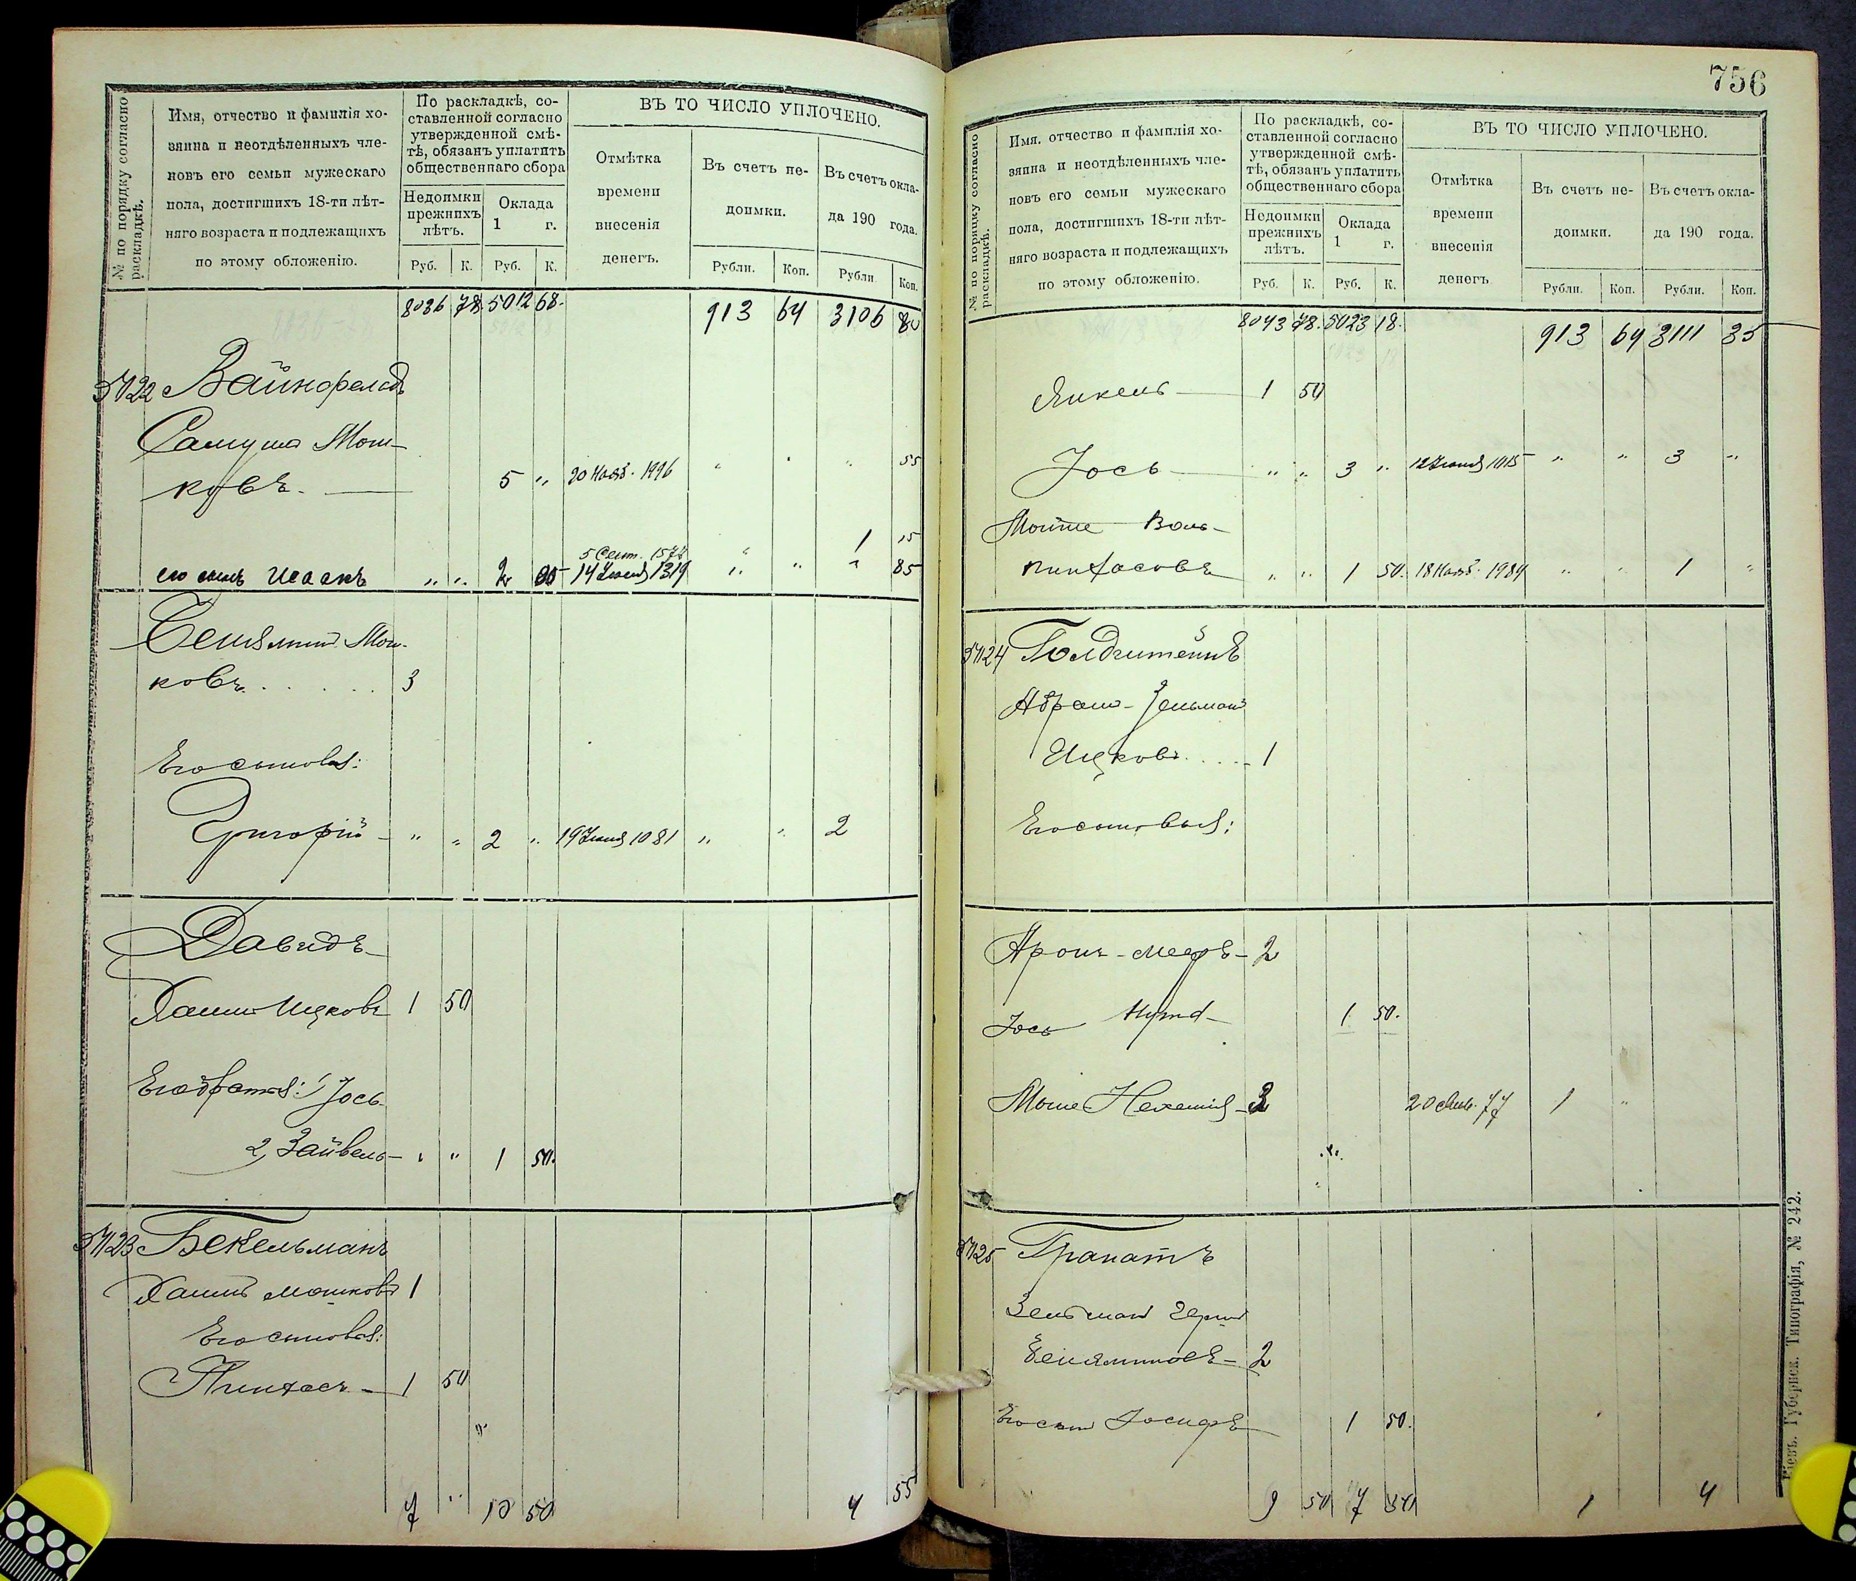 № по порядку согласно раскладкѣ.
Имя, отчество и фамилія хо-
зяина и неотдѣленныхъ чле-
новъ его семьи мужескаго
пола, достигшихъ 18-ти лѣт-
няго возраста и подлежащихъ
по этому обложенію.
По раскладкѣ, со-
ставленной согласно
утвержденной смѣ-
тѣ, обязанъ уплатить
общественнаго сбора
Недоимки
прежнихъ
лѣтъ.
Оклада
1 г.
Руб. К. Руб. К.
ВЪ ТО ЧИСЛО УПЛОЧЕНО.
Отмѣтка
времени
внесенія
денегъ.
Въ счетъ не-
доимки.
Рубли. Коп.
Въ счетъ окла-
да 190 года.
Рубли Коп.
8036 78 5012 68. 913 64 3106 80
Вайнфельдъ
Мош-
ковъ. 5 " 20 Нояб. 1996 " " " 55
1 15
5 Сент. 1578
его сынъ Исаакъ " " 2 14 Іюня 1319 " " " 85
Мош-
ковъ 3
Его сыновья:
Григорій " " 2 " 19 Іюня 1081 " " 2
Давидъ
Хаимъ Ицковъ 1 50
Его братья: 1) Іось
2, Зайвель " " 1 50.
5423 Бекельманъ
Хаимъ Мошковъ 1
Его сыновья:
Пинхасъ 1 50
"
7 " 10 50 4 55
756
№ по порядку согласно раскладкѣ.
Имя. отчество и фамилія хо-
зяина и неотдѣленныхъ чле-
новъ его семьи мужескаго
пола, достигшихъ 18-ти лѣт-
няго возраста и подлежащихъ
по этому обложенію.
По раскладкѣ, со-
ставленной согласно
утвержденной смѣ-
тѣ, обязанъ уплатить
общественнаго сбора
Недоимки
прежнихъ
лѣтъ.
Оклада
1 г.
Руб. К. Руб. К.
ВЪ ТО ЧИСЛО УПЛОЧЕНО.
Отмѣтка
времени
внесенія
денегъ
Въ счетъ не-
доимки.
Рубли. Коп.
Въ счетъ окла-
да 190 года.
Рубли. Коп.
8043 78. 5023 18. 913 64 3111 35
Янкель 1 50
Іось " " 3 " 12 Іюня 1015 " " 3 "
Мойше Воль-
Пинхасовъ " " 1 50. 18 Нояб. 1984 " " 1 "
Голдштейнъ
Абрамъ-Зельманъ
Ицковъ 1
Его сыновья:
Аронъ-Мееръ 2
Іось 1 50.
Моше Нехемія 20 77 1 "
Гранатъ
Зельманъ Герш
Беньяминовъ 2
Его сынъ Іосифъ 1 50.
9 50 7 50 1 4
Кіевъ. Губернск. Типографія, № 242.